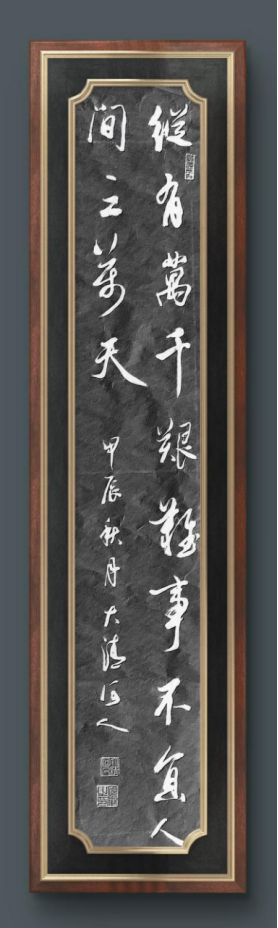 縱有萬千艱難事不負人
間三萬天
甲辰秋月大清河人